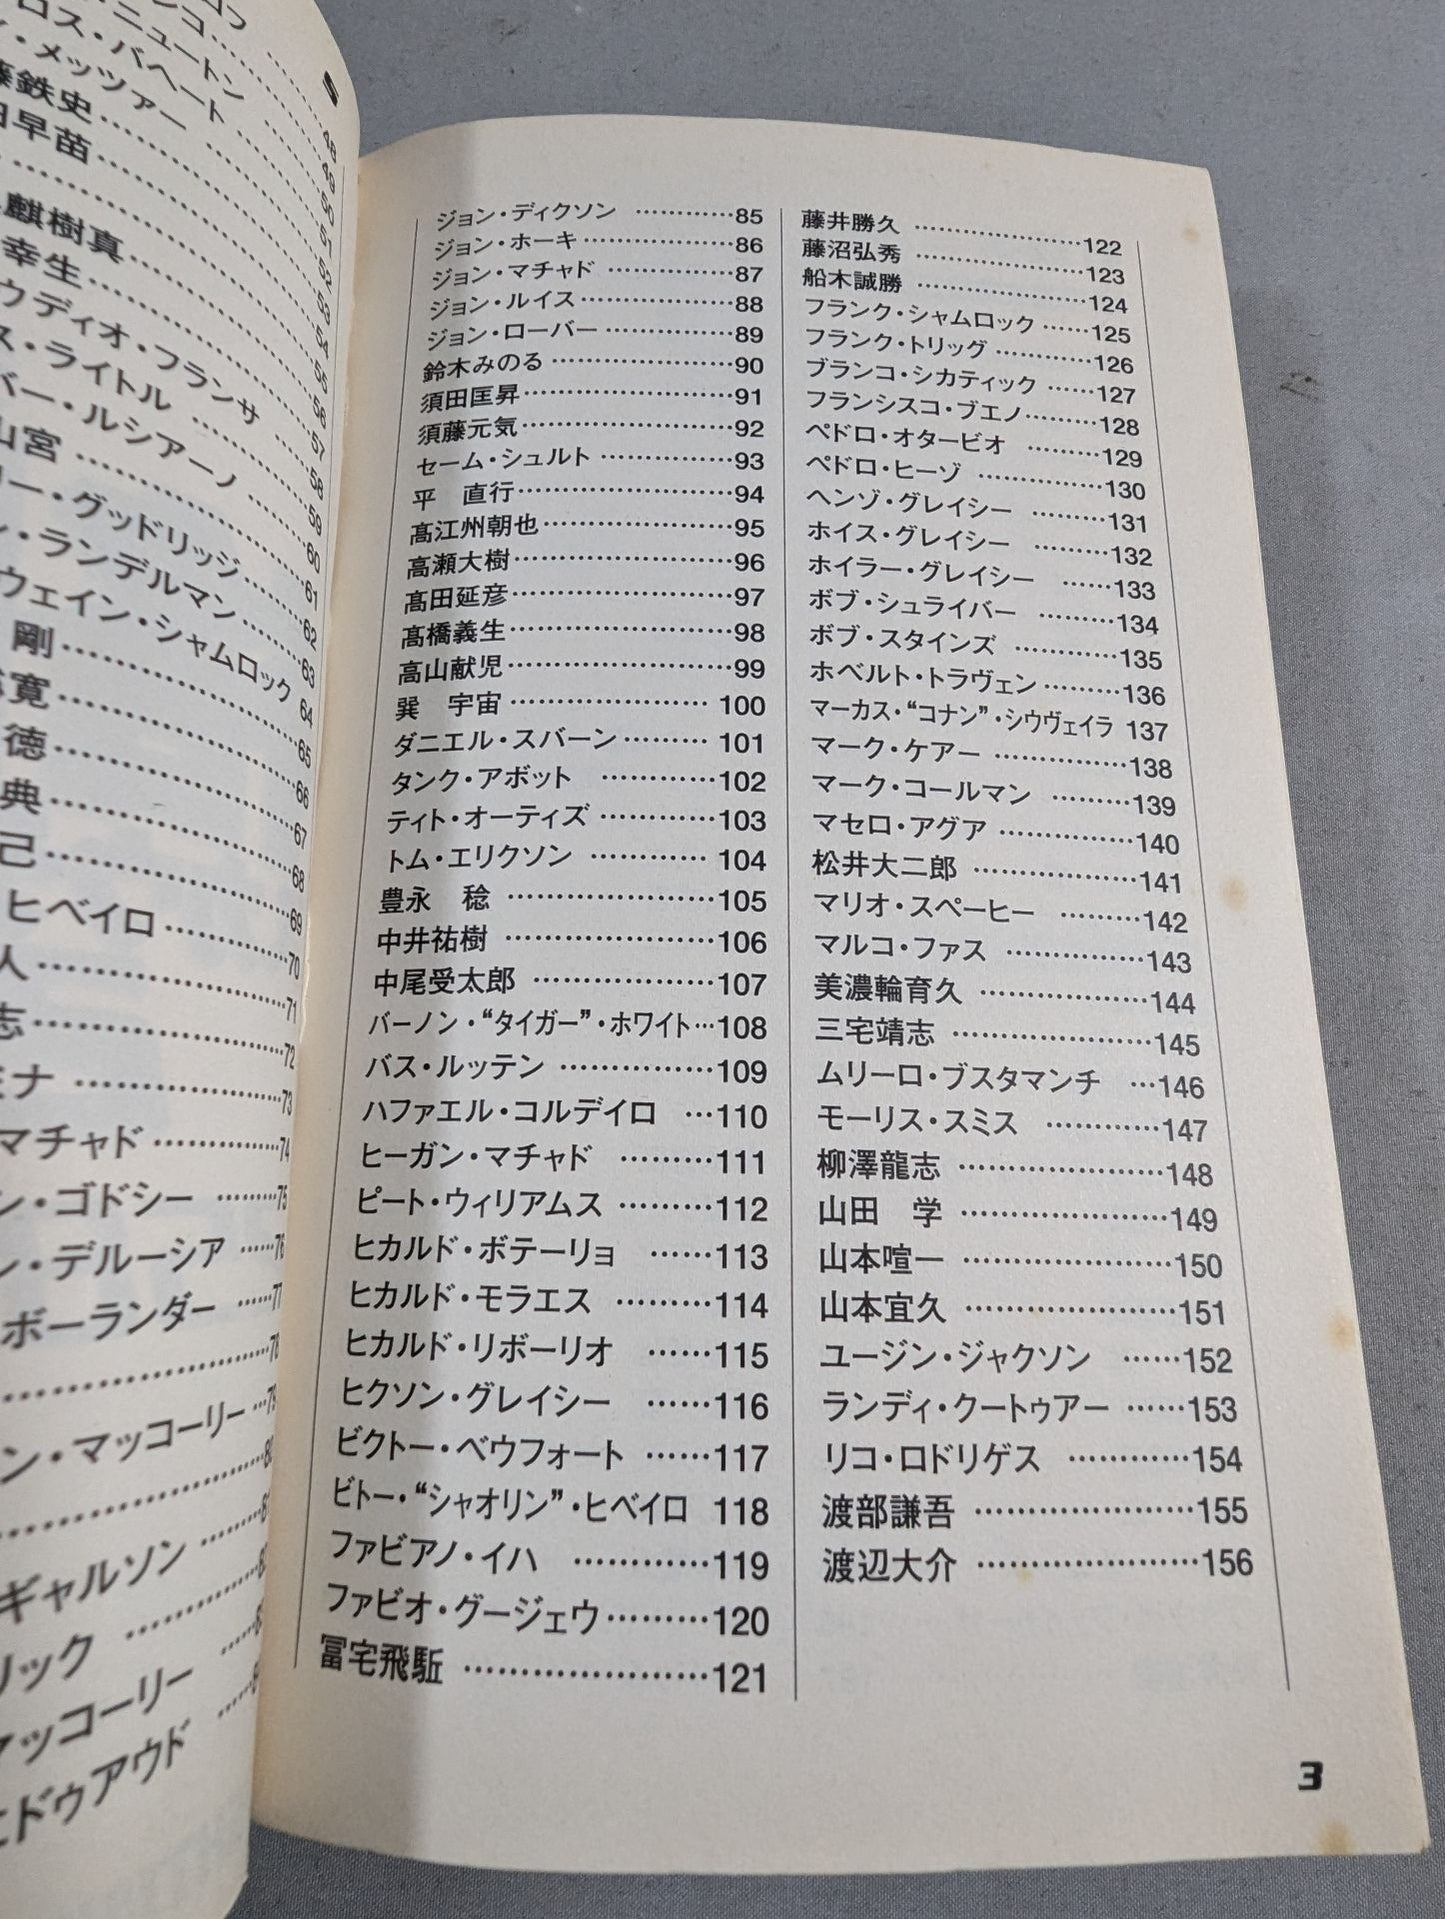 ロス・バヘート
・ニュートン
・メッツァー
藤鉄史……………48
早苗……………
麒樹真
幸生
ウディオ・フランサ
ス・ライトル
バー・ルシアーノ
山宮
リー・グッドリッジ……61
ン・ランデルマン……62
ウェイン・シャムロック 64
剛
寛
徳
典
己
ヒベイロ……………70
人……………71
志……………72
ミナ……………73
マチャド……………74
ン・ゴドシー………75
ン・デルーシア……76
ボーランダー……77
……………78
ン・マッコーリー…79
ギャルソン
リック
マッコーリー
ヒドゥアウド
ジョン・ディクソン…………85
ジョン・ホーキ………………86
ジョン・マチャド……………87
ジョン・ルイス………………88
ジョン・ローバー……………89
鈴木みのる……………………90
須田匡昇………………………91
須藤元気………………………92
セーム・シュルト……………93
平　直行………………………94
髙江州朝也……………………95
高瀬大樹………………………96
髙田延彦………………………97
髙橋義生………………………98
高山献児………………………99
巽　宇宙……………………100
ダニエル・スバーン………101
タンク・アボット…………102
ティト・オーティズ………103
トム・エリクソン…………104
豊永　稔……………………105
中井祐樹……………………106
中尾受太郎…………………107
バーノン・“タイガー”・ホワイト…108
バス・ルッテン……………109
ハファエル・コルデイロ…110
ヒーガン・マチャド………111
ピート・ウィリアムス……112
ヒカルド・ボテーリョ……113
ヒカルド・モラエス………114
ヒカルド・リボーリオ……115
ヒクソン・グレイシー……116
ビクトー・ベウフォート……117
ビトー・“シャオリン”・ヒベイロ 118
ファビアノ・イハ…………119
ファビオ・グージェウ………120
冨宅飛駈……………………121
藤井勝久……………………122
藤沼弘秀……………………123
船木誠勝……………………124
フランク・シャムロック……125
フランク・トリッグ…………126
ブランコ・シカティック……127
フランシスコ・ブエノ………128
ペドロ・オタービオ…………129
ペドロ・ヒーゾ……………130
ヘンゾ・グレイシー………131
ホイス・グレイシー………132
ホイラー・グレイシー……133
ボブ・シュライバー………134
ボブ・スタインズ…………135
ホベルト・トラヴェン………136
マーカス・“コナン”・シウヴェイラ 137
マーク・ケアー……………138
マーク・コールマン………139
マセロ・アグア……………140
松井大二郎…………………141
マリオ・スペーヒー………142
マルコ・ファス……………143
美濃輪育久…………………144
三宅靖志……………………145
ムリーロ・ブスタマンチ…146
モーリス・スミス…………147
柳澤龍志……………………148
山田　学……………………149
山本喧一……………………150
山本宜久……………………151
ユージン・ジャクソン……152
ランディ・クートゥアー……153
リコ・ロドリゲス…………154
渡部謙吾……………………155
渡辺大介……………………156
3